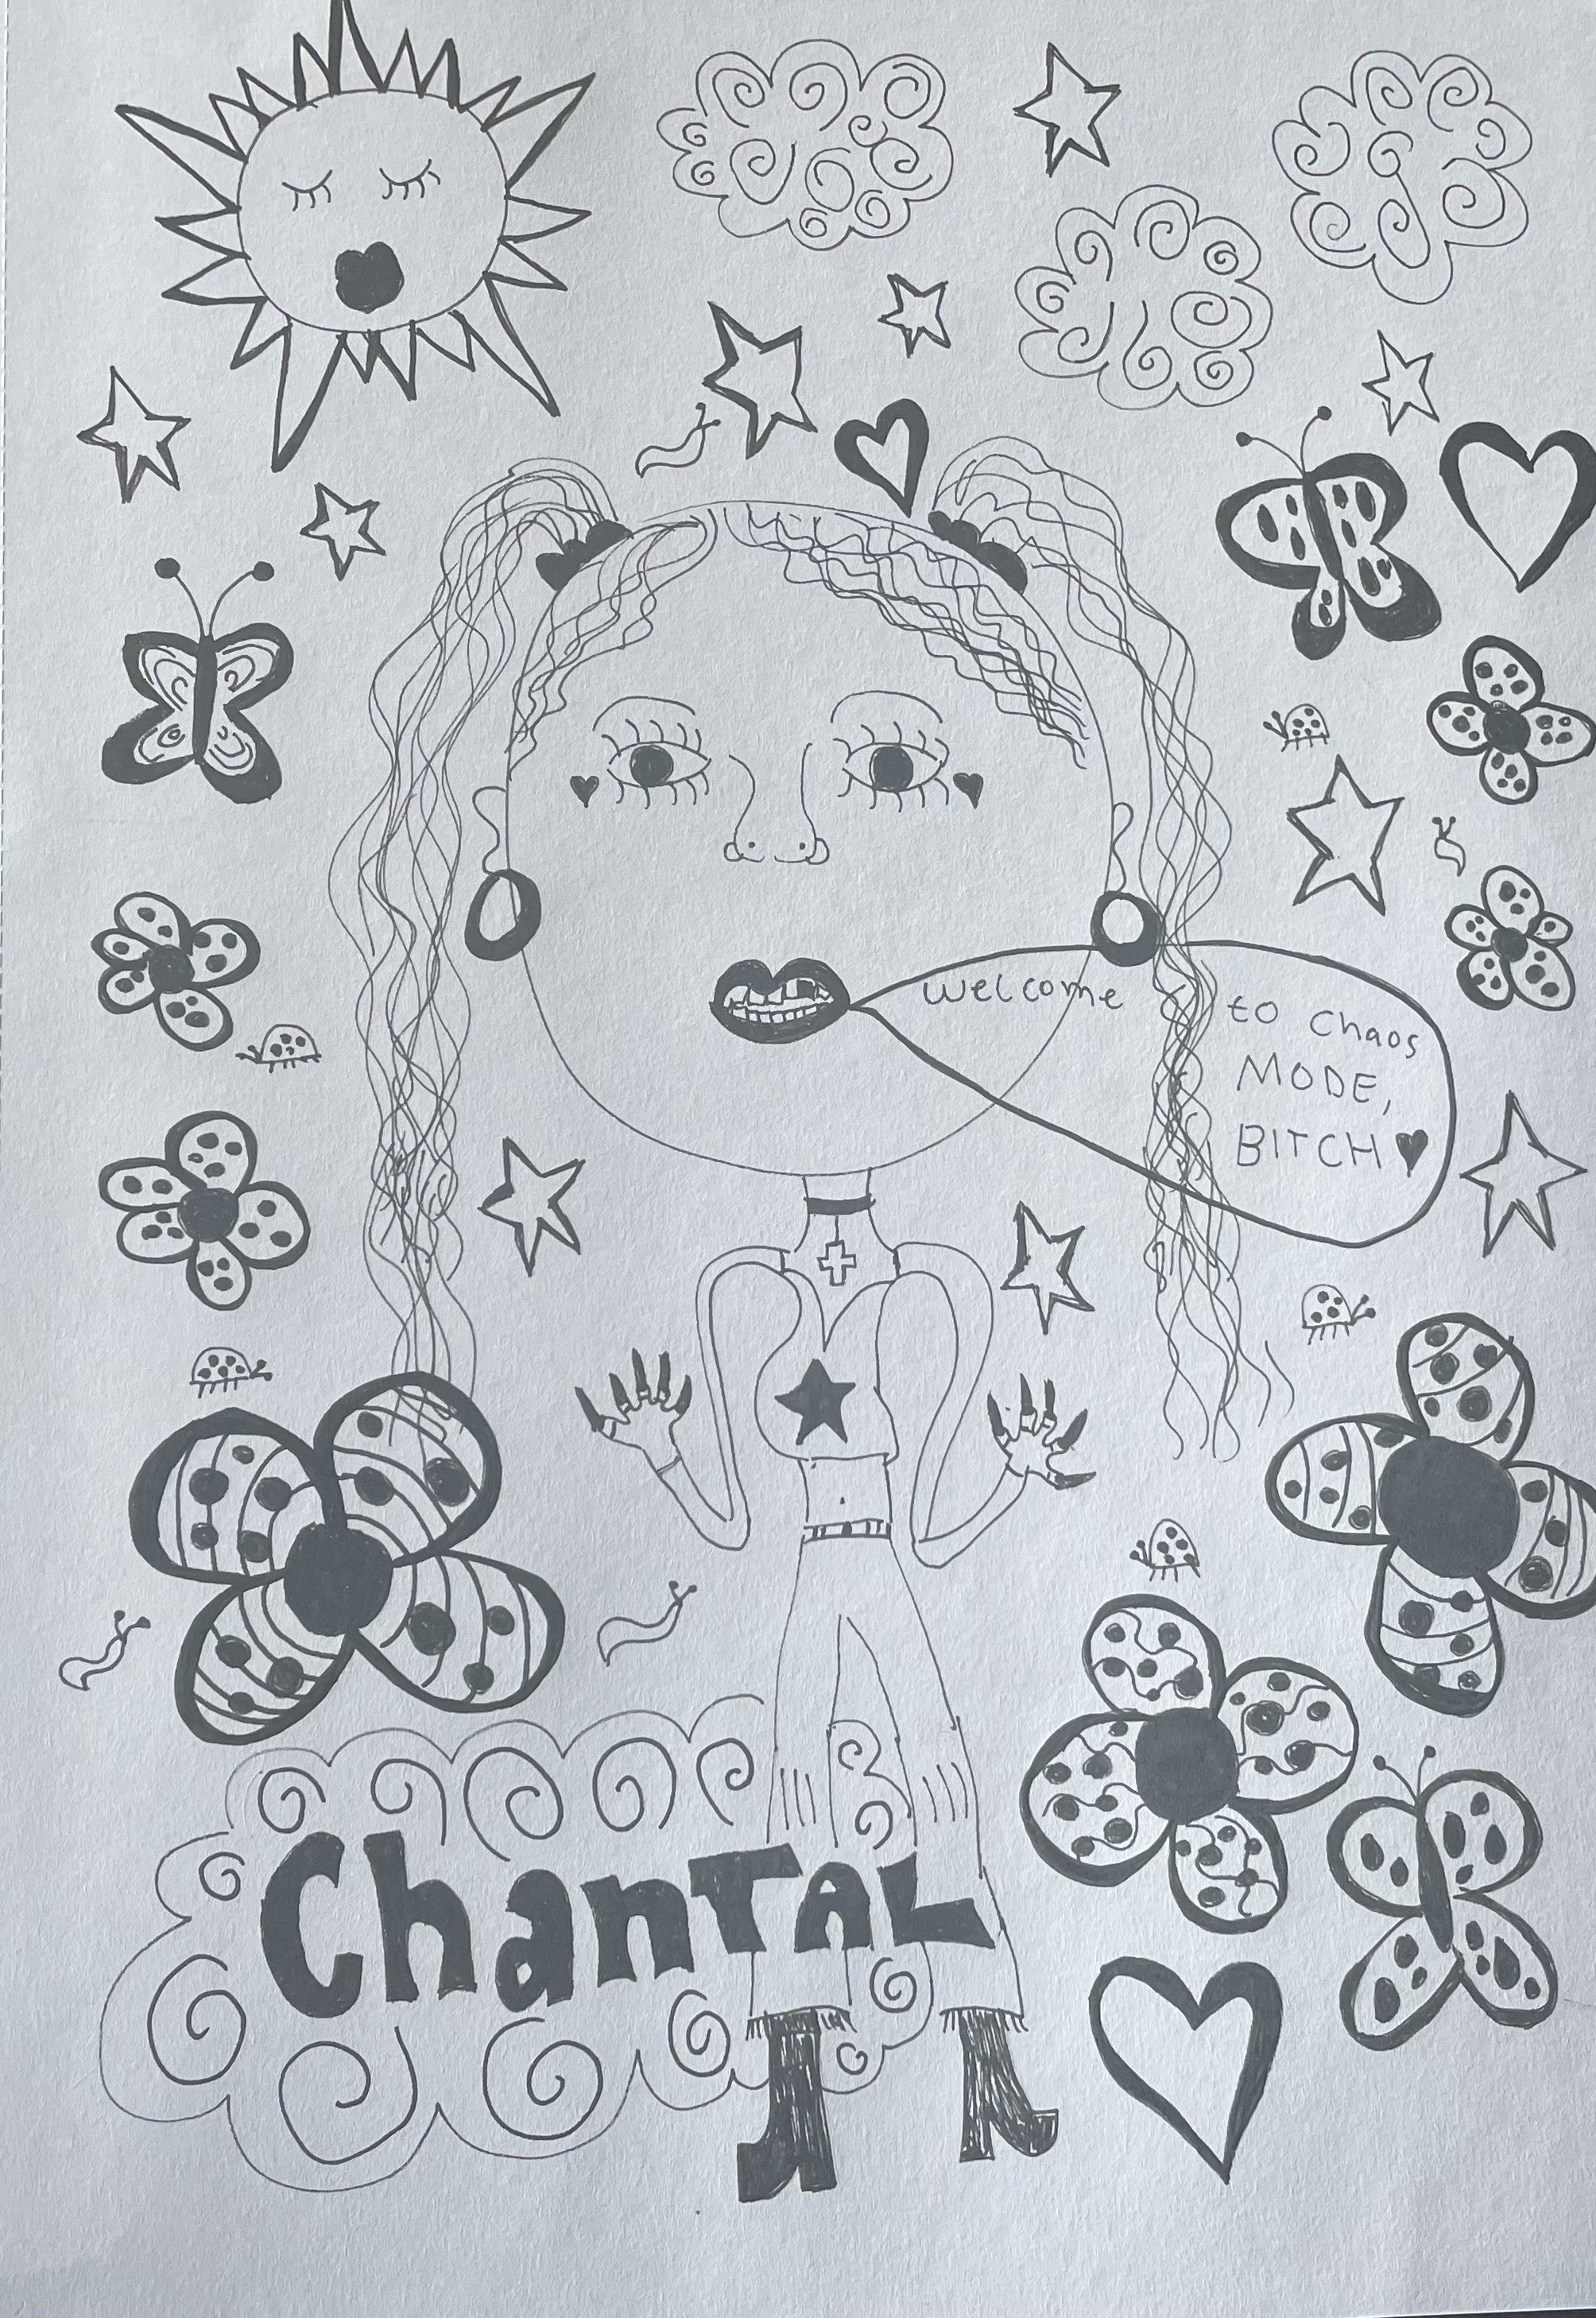 welcome to chaos
MODE,
BITCH
ChanTAL